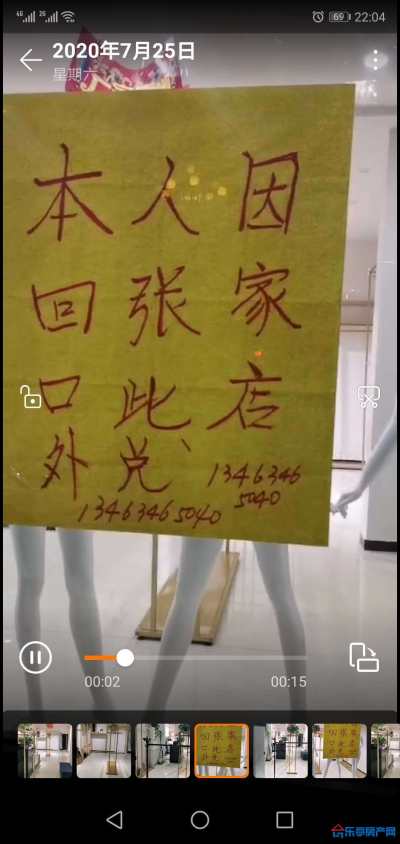 4G 2G 69 22:04
2020年7月25日
星期六
本人因
回张家
口此店
外兑、
13463465040
13463465040
00:02 00:15
乐亭房产网